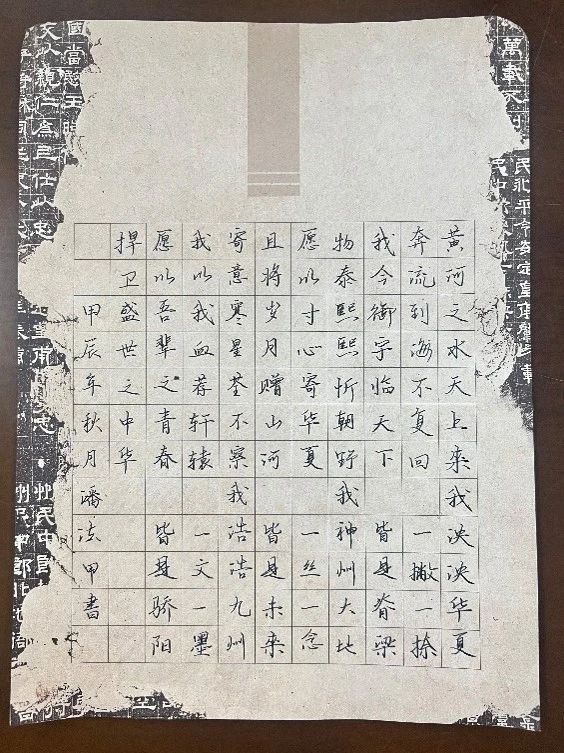 黄河之水天上来 我泱泱华夏
奔流到海不复回 一撇一捺
我今御宇临天下 皆是脊梁
物泰熙熙忻朝野 我神州大地
愿以寸心寄华夏 一丝一念
且将岁月赠山河 皆是未来
寄意寒星荃不察 我浩浩九州
我以我血荐轩辕 一文一墨
愿以吾辈之青春 皆是骄阳
捍卫盛世之中华
甲辰年秋月潘法甲书